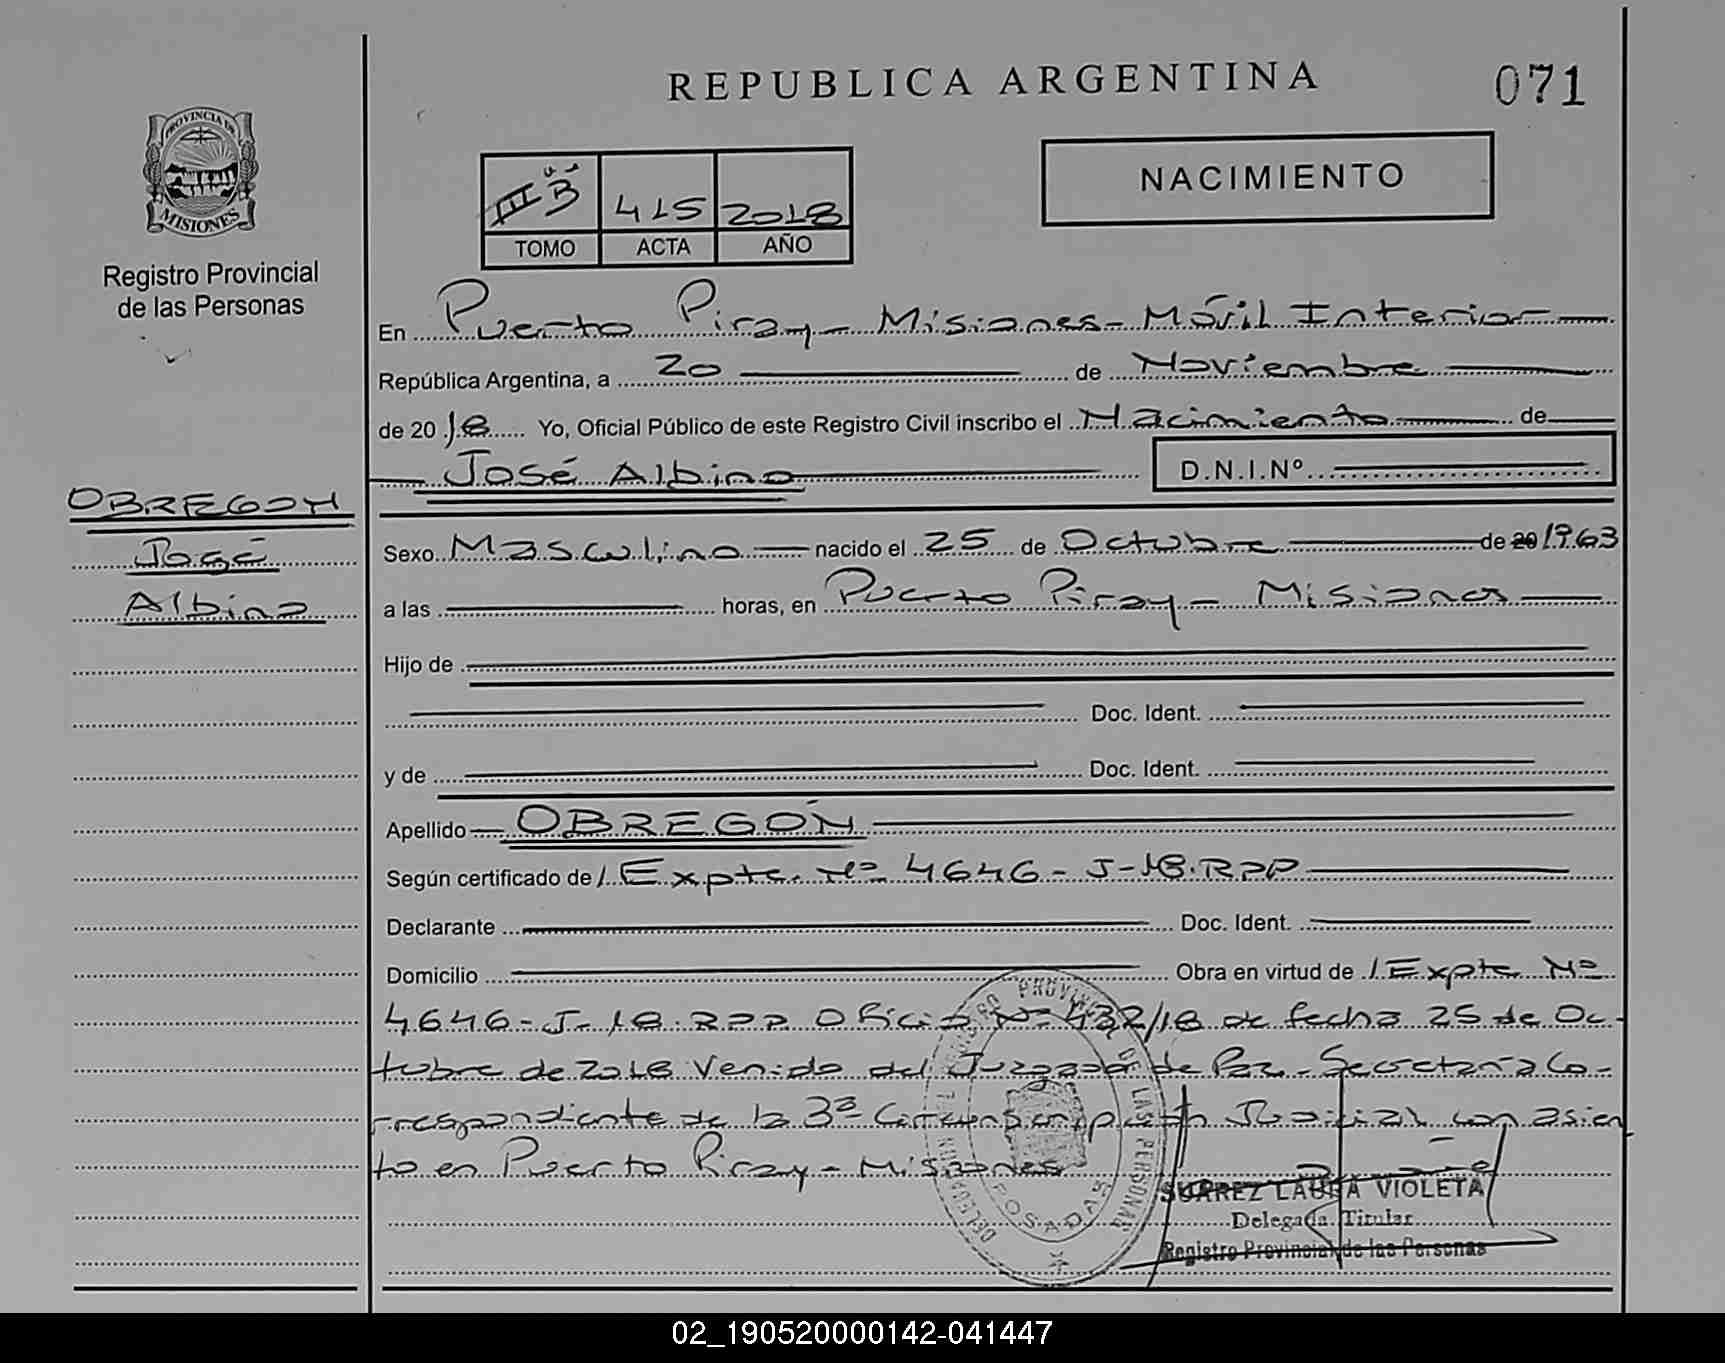 REPUBLICA ARGENTINA
071
PROVINCIA DE
MISIONES
Registro Provincial
de las Personas
III "B" 415 2018
TOMO ACTA AÑO
NACIMIENTO
En Puerto Piray - Misiones - Móvil Interior
República Argentina, a 20 de Noviembre
de 2018 Yo, Oficial Público de este Registro Civil inscribo el Nacimiento de
José Albino D.N.I.Nº
OBREGON
José
Albino
Sexo Masculino nacido el 25 de Octubre de 20 1963
a las horas, en Puerto Piray - Misiones
Hijo de
Doc. Ident.
y de Doc. Ident.
Apellido OBREGÓN
Según certificado de / Expte. Nº 4646 - J-18.RPP
Declarante Doc. Ident.
Domicilio Obra en virtud de / Expte Nº
4646 - J - 18.RPP Oficio Nº 432/18 de fecha 25 de Oc-
tubre de 2018 Venido del Juzgado de Paz - Secretaría Co-
rrespondiente de la 3ª Circunscripción Judicial con asien
to en Puerto Piray - Misiones
PROVINCIAL DE LAS PERSONAS
POSADAS
SUAREZ LAURA VIOLETA
Delegada Titular
Registro Provincial de las Personas
02_190520000142-041447